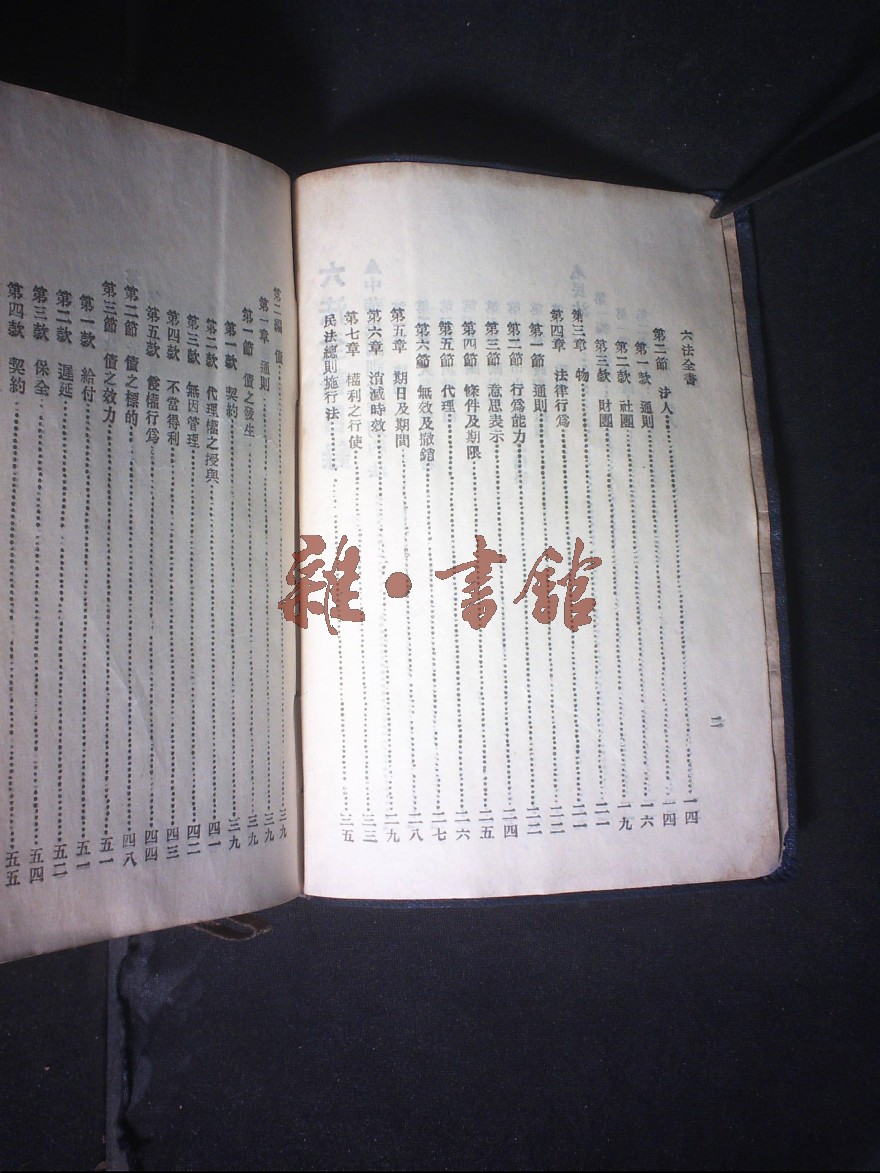 六法全書
二
第二節 法人⋯⋯一四
第一款 通則⋯⋯一四
第二款 社團⋯⋯一六
第三款 財團⋯⋯一九
第三章 物⋯⋯二一
第四章 法律行爲⋯⋯二一
第一節 通則⋯⋯二二
第二節 行爲能力⋯⋯二二
第三節 意思表示⋯⋯二四
第四節 條件及期限⋯⋯二五
第五節 代理⋯⋯二六
第六節 無效及撤銷⋯⋯二七
第五章 期日及期間⋯⋯二八
第六章 消滅時效⋯⋯二九
第七章 權利之行使⋯⋯三三
民法總則施行法⋯⋯三五
第二編 債⋯⋯三九
第一章 通則⋯⋯三九
第一節 債之發生⋯⋯三九
第一款 契約⋯⋯三九
第二款 代理權之授與⋯⋯四一
第三款 無因管理⋯⋯四二
第四款 不當得利⋯⋯四三
第五款 侵權行爲⋯⋯四四
第二節 債之標的⋯⋯四八
第三節 債之效力⋯⋯五一
第一款 給付⋯⋯五一
第二款 遲延⋯⋯五二
第三款 保全⋯⋯五四
第四款 契約⋯⋯五五
雜·書館